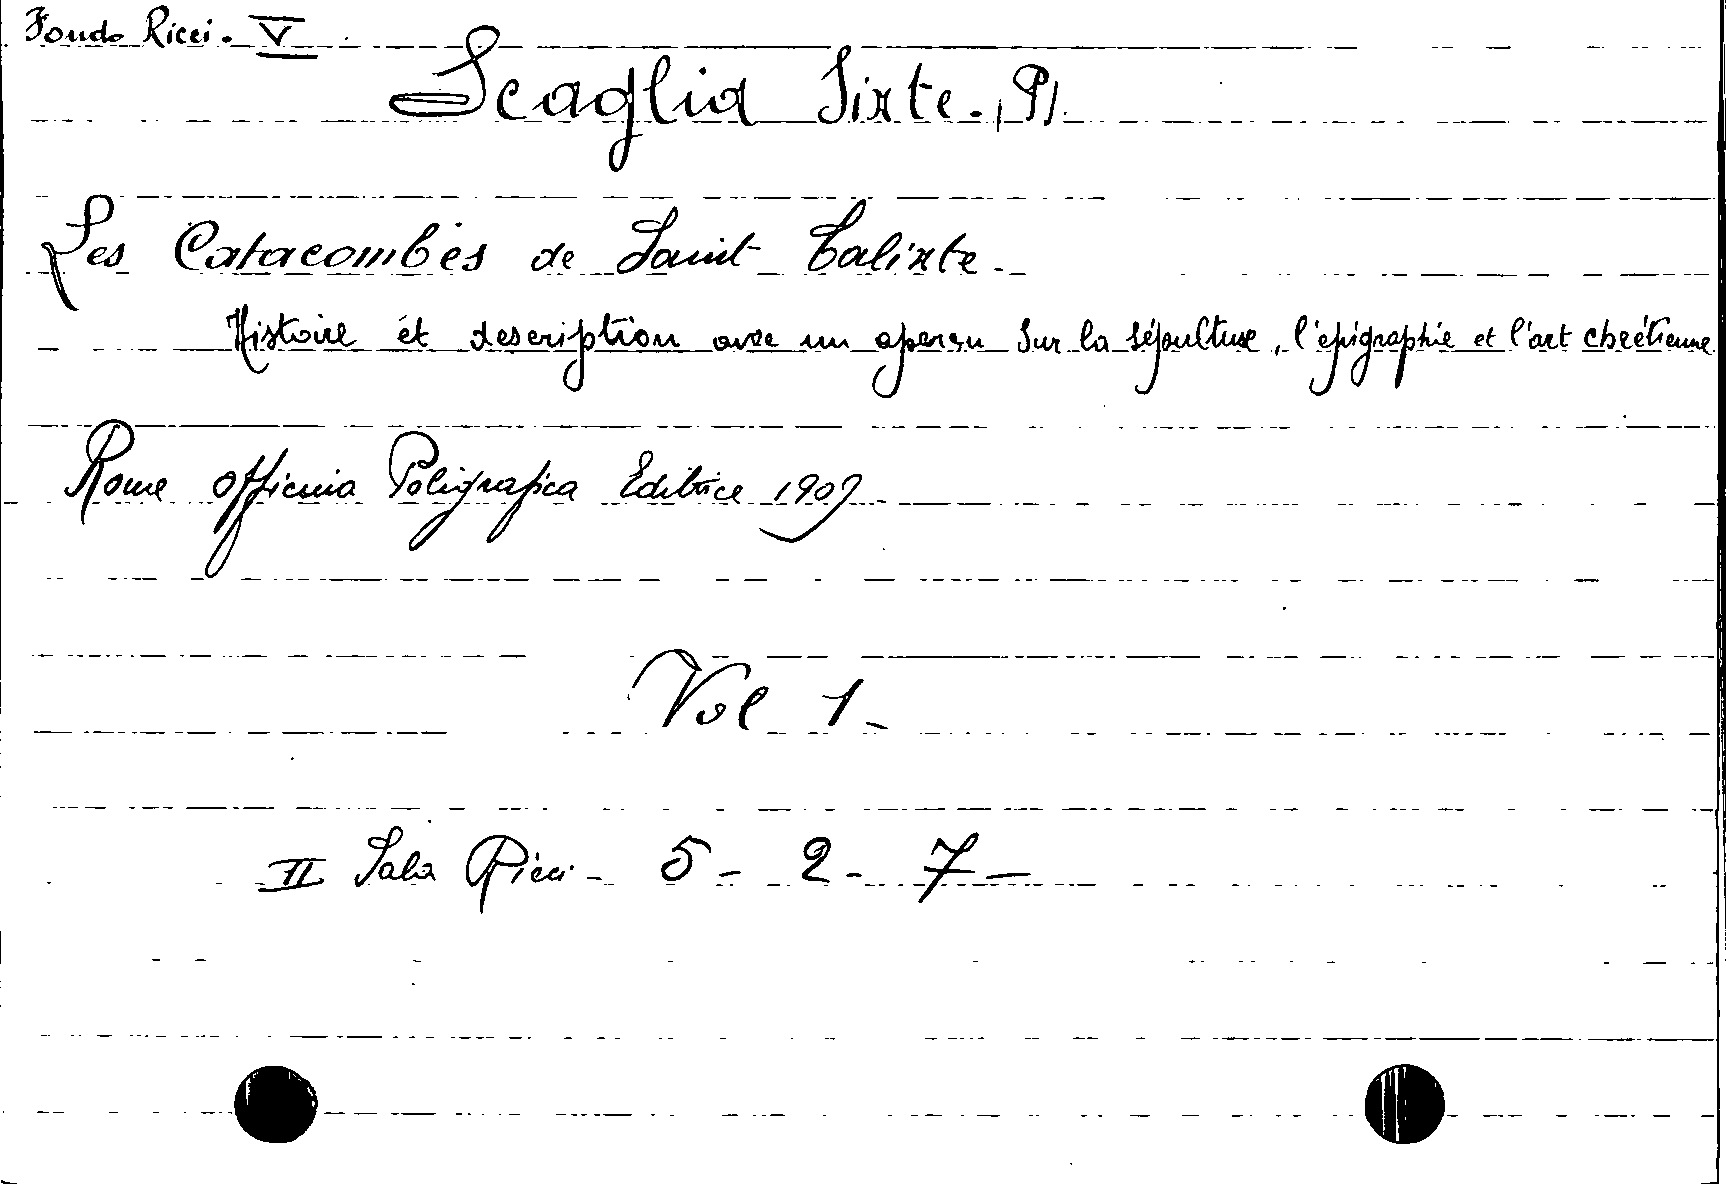 Fondo Ricci. V
Scaglia Sixte. (P)
Les Catacombes de Saint Calixte.
Histoire et description avec un aperçu sur la sépulture, l'épigraphie et l'art chrétienne
Rome Officina Poligrafica Editrice 1909
Vol 1-
II Sala Ricci - 5 - 2 - 7 -